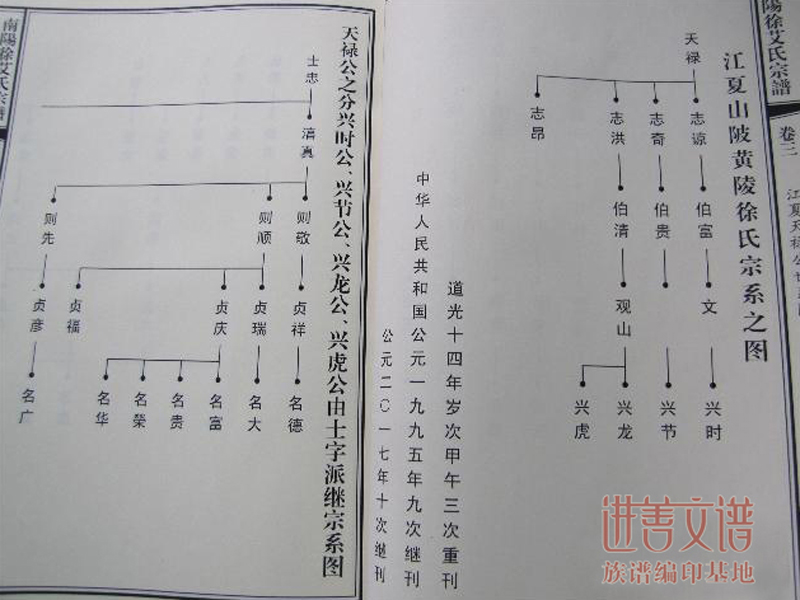 陽徐艾氏宗譜
卷三
江夏天禄公世系图
江夏山陂黄陵徐氏宗系之图
天禄
志谅
志奇
志洪
志昂
伯富
伯贵
伯清
文
观山
兴时
兴节
兴龙
兴虎
道光十四年岁次甲午三次重刊
中华人民共和国公元一九九五年九次继刊
公元二〇一七年十次继刊
天禄公之分兴时公、兴节公、兴龙公、兴虎公由士字派继宗系图
士忠
滴真
则敬
则顺
则先
贞祥
贞瑞
贞庆
贞福
贞彦
名德
名大
名富
名贵
名榮
名华
名广
南陽徐艾氏宗譜
进善文谱
族谱编印基地